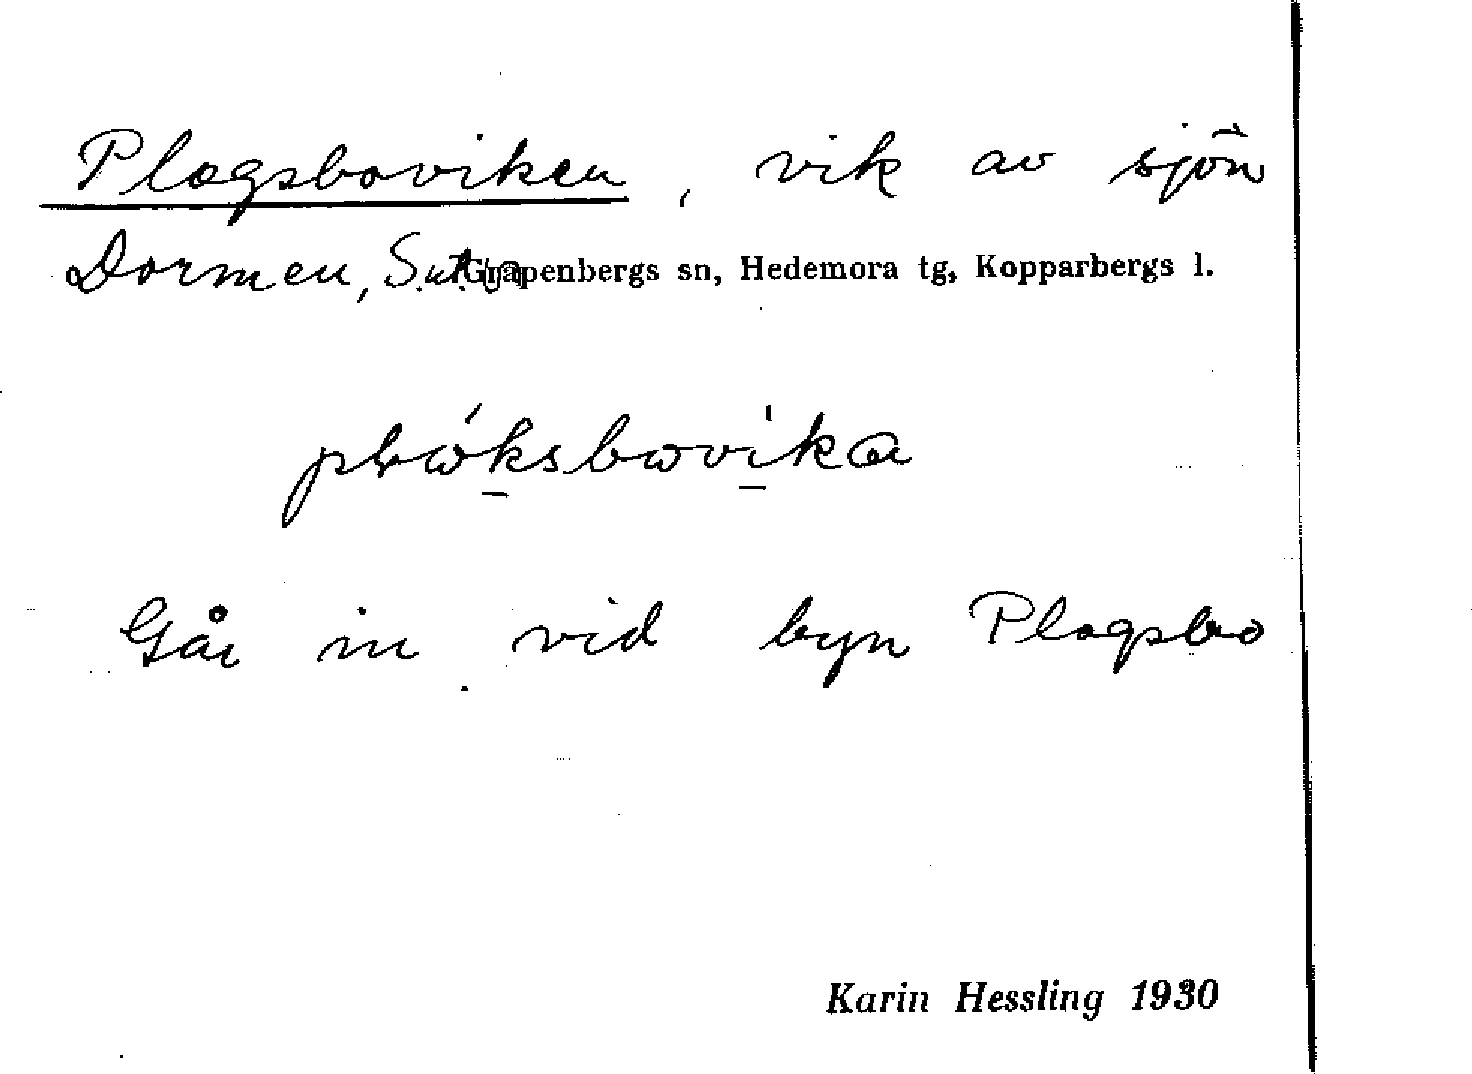 Plogsboviken, vik av sjön
Dormen, Garpenbergs sn, Hedemora tg, Kopparbergs l.
Går in vid byn Plogsbo
Karin Hessling 1930